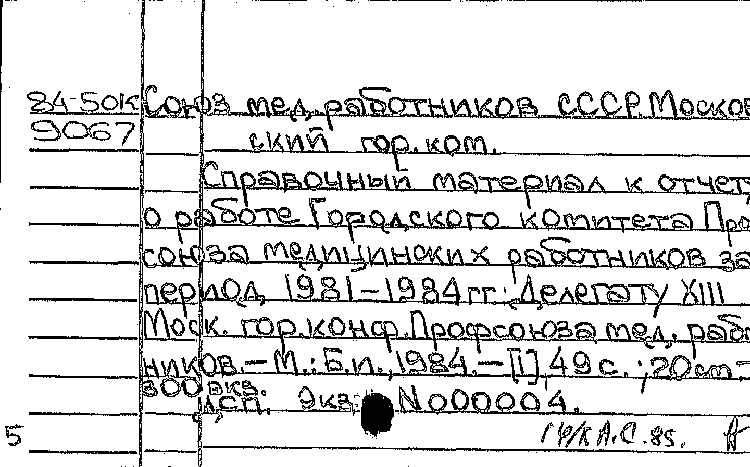 84-50К Союз мед. работников СССР. Москов
9067 ский гор. ком.
Справочный материал к отчет,
о работе Городского комитета Про
союза медицинских работников за
период 1981-1984 гг.: Делегату XIII
Моск. гор. конф. Профсоюза мед. рабо
ников. - М.: Б.и., 1984. - [1], 49 с.; 20 см -
300 экз.
ДСП. Экз. N 000004.
5 А.С. 85.